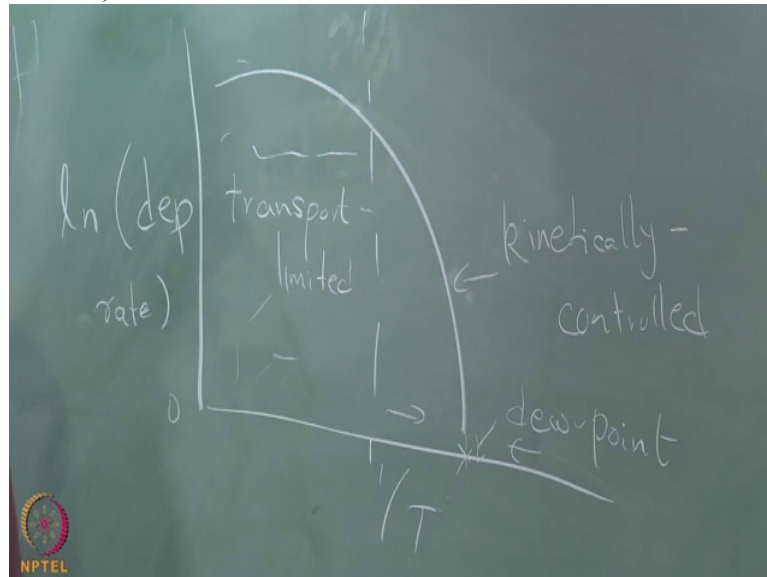 ln (dep
rate)
transport-
limited
kinetically-
controlled
0
dew-point
1/T
NPTEL